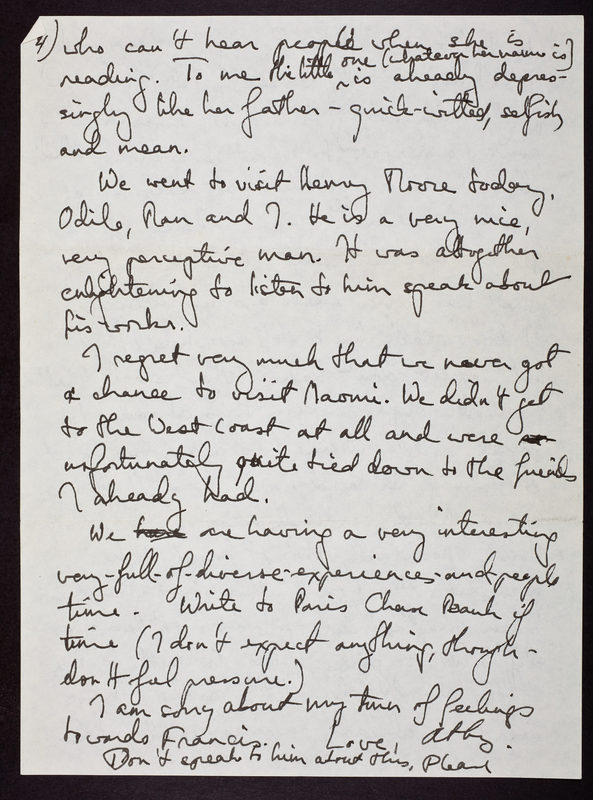 4) who can't hear people when she is
reading. To me the little one (whatever her name is) is already depres-
singly like her father – quick-witted, selfish
and mean.
We went to visit Henry Moore today,
Odile, Man and I. He is a very nice,
very perceptive man. It was altogether
enlightening to listen to him speak about
his works.
I regret very much that we never got
a chance to visit Naomi. We didn't get
to the West Coast at all and were
unfortunately quite tied down to the friends
I already had.
We are having a very interesting
very-full-of-diverse-experiences-and-people
time. Write to Paris Chase Bank if
time (I don't expect anything, though -
don't feel pressure.)
I am sorry about my turn of feelings
towards Francis. Love, Abby.
Don't speak to him about this, Please